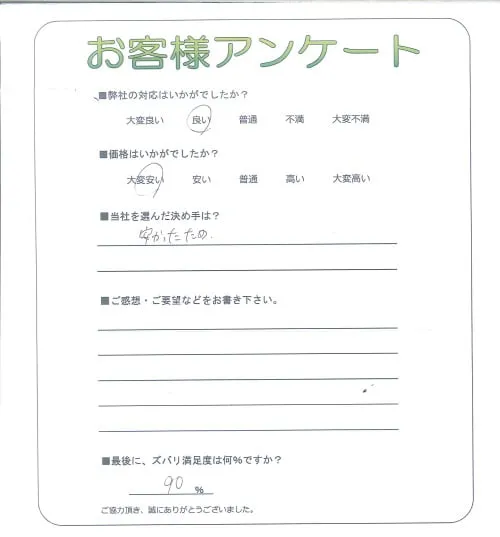 お客様アンケート
■弊社の対応はいかがでしたか？
大変良い 良い 普通 不満 大変不満
■価格はいかがでしたか？
大変安い 安い 普通 高い 大変高い
■当社を選んだ決め手は？
安かったため.
■ご感想・ご要望などをお書き下さい。
■最後に、ズバリ満足度は何%ですか？
90 %
ご協力頂き、誠にありがとうございました。